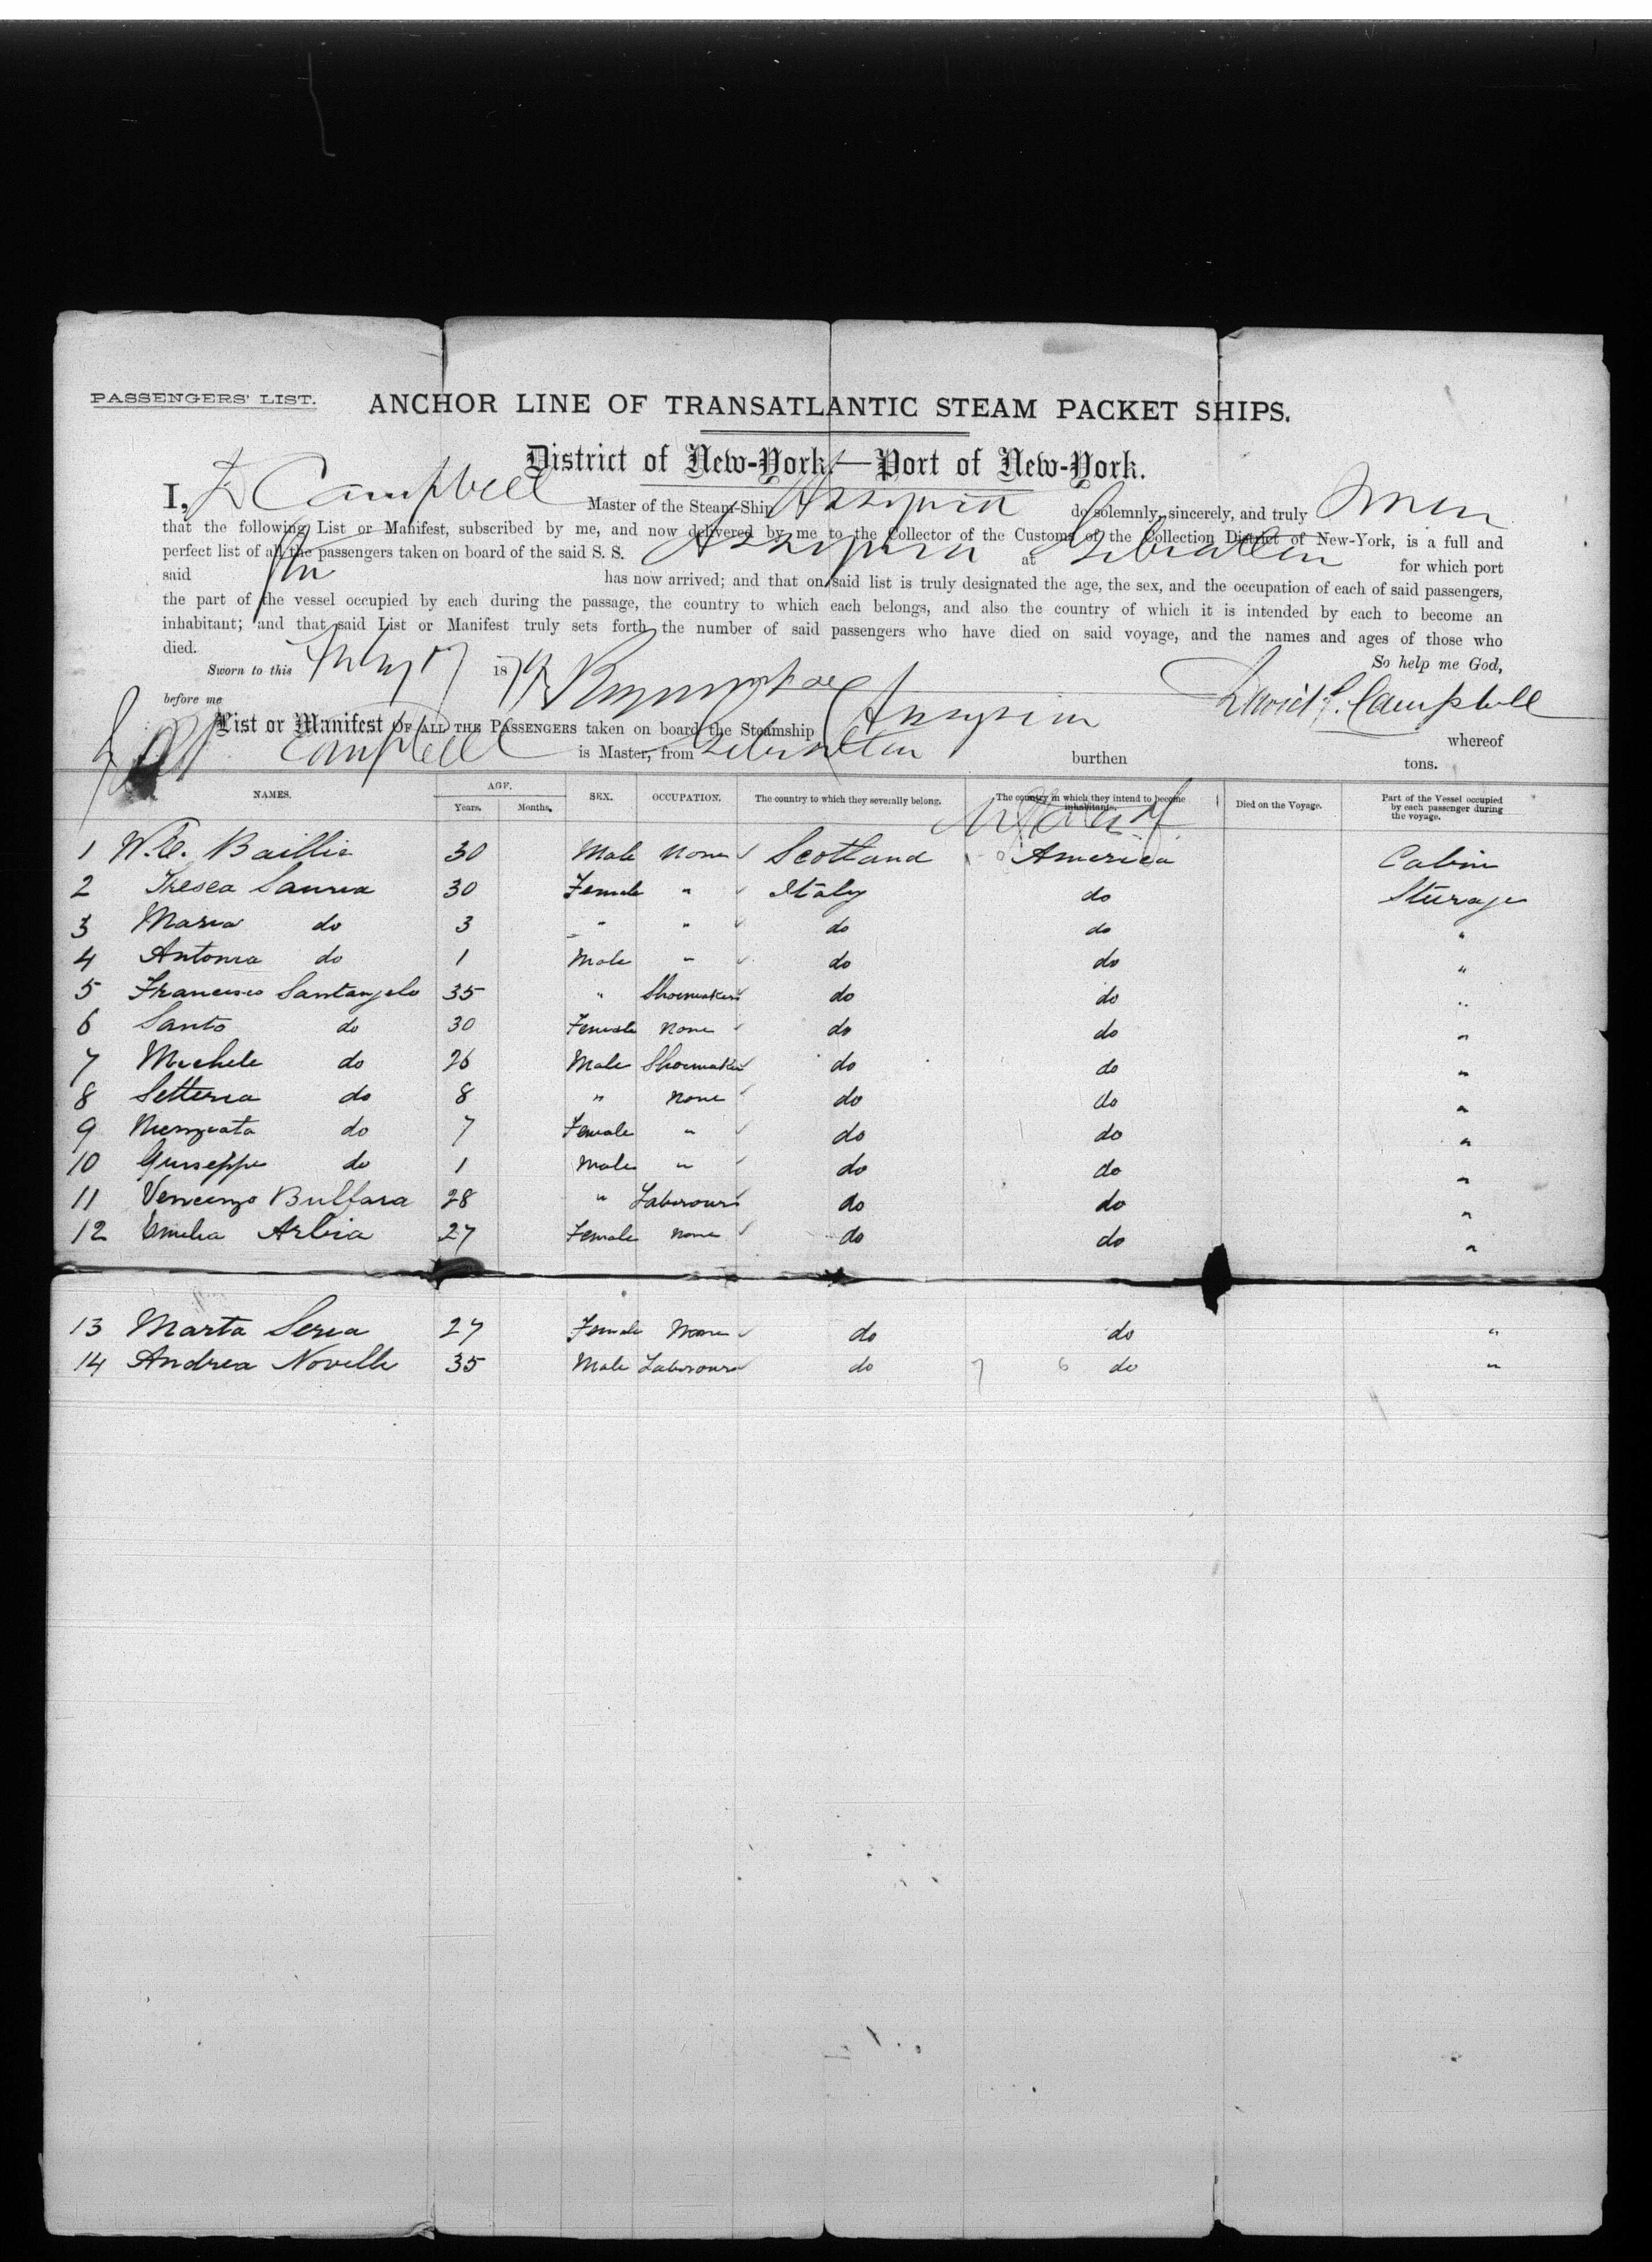 PASSENGERS' LIST.
ANCHOR LINE OF TRANSATLANTIC STEAM PACKET SHIPS.
District of New-York.—Port of New-York.
I, D Campbell Master of the Steam-Ship Assyria do solemnly, sincerely, and truly
that the following List or Manifest, subscribed by me, and now delivered by me to the Collector of the Customs of the Collection District of New-York, is a full and
perfect list of all the passengers taken on board of the said S. S. Assyria at Gibraltar for which port
said has now arrived; and that on said list is truly designated the age, the sex, and the occupation of each of said passengers,
the part of the vessel occupied by each during the passage, the country to which each belongs, and also the country of which it is intended by each to become an
inhabitant; and that said List or Manifest truly sets forth the number of said passengers who have died on said voyage, and the names and ages of those who
died. So help me God,
Sworn to this 17 187
before me David Campbell
List or Manifest OF ALL THE PASSENGERS taken on board the Steamship Assyria whereof
Campbell is Master, from Gibraltar burthen tons.
NAMES. AGE. Years. Months. SEX. OCCUPATION. The country to which they severally belong. The country in which they intend to become inhabitants. Died on the Voyage. Part of the Vessel occupied by each passenger during the voyage.
1 Baillie 30 Male None Scotland America Cabin
2 Tresea Sauria 30 Female " Italy do Sturage
3 Maria do 3 " " do do "
4 Antonia do 1 Male " do do "
5 Francisco Santangelo 35 " Shoemaker do do "
6 Santo do 30 Female None do do "
7 Michele do 26 Male Shoemaker do do "
8 Setteria do 8 " None do do "
9 Nunziata do 7 Female " do do "
10 Guiseppe do 1 Male " do do "
11 Vencenzo Bulfara 28 " Labourer do do "
12 Emelia Arbia 27 Female None do do "
13 Marta Seria 27 Female None do do "
14 Andrea Novelle 35 Male Labourer do 7 6 do "